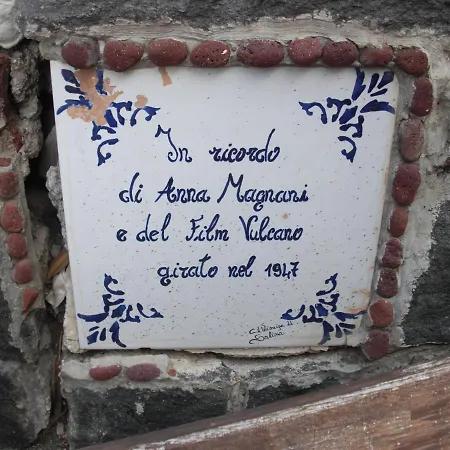 In ricordo
di Anna Magnani
e del Film Vulcano
girato nel 1947
Salina